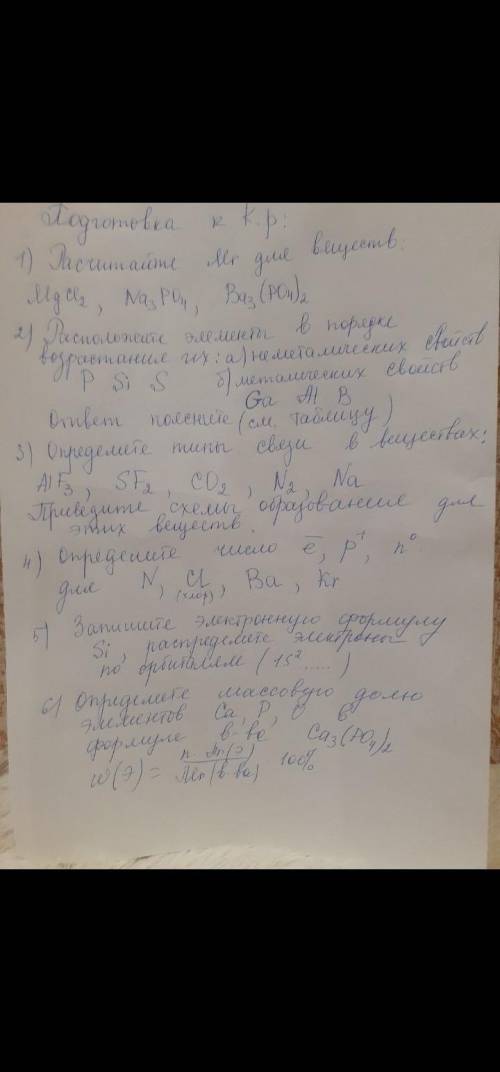 Подготовка к К.р:
1) Расчитайте Mr для веществ:
MgCl2, Na3PO4, Ba3(PO4)2
2) Расположите элементы в порядке
возрастания их: а) неметалических свойств
P Si S б) металических свойств
Ga Al B
Ответ поясните (см. таблицу)
3) Определите типы связи в веществах:
AlF3, SF2, CO2, N2, Na
Приведите схемы образования для
этих веществ.
4) Определите число e̅, p⁺, n⁰
для N, Cl, Ba, Kr
(хлор)
5) Запишите электронную формулу
Si, распределите электроны
по орбиталям (1s².....)
6) Определите массовую долю
элементов Ca, P, O в
формуле в-ва Ca3(PO4)2
w(Э) = n·Ar(Э) / Mr(в-ва) 100%